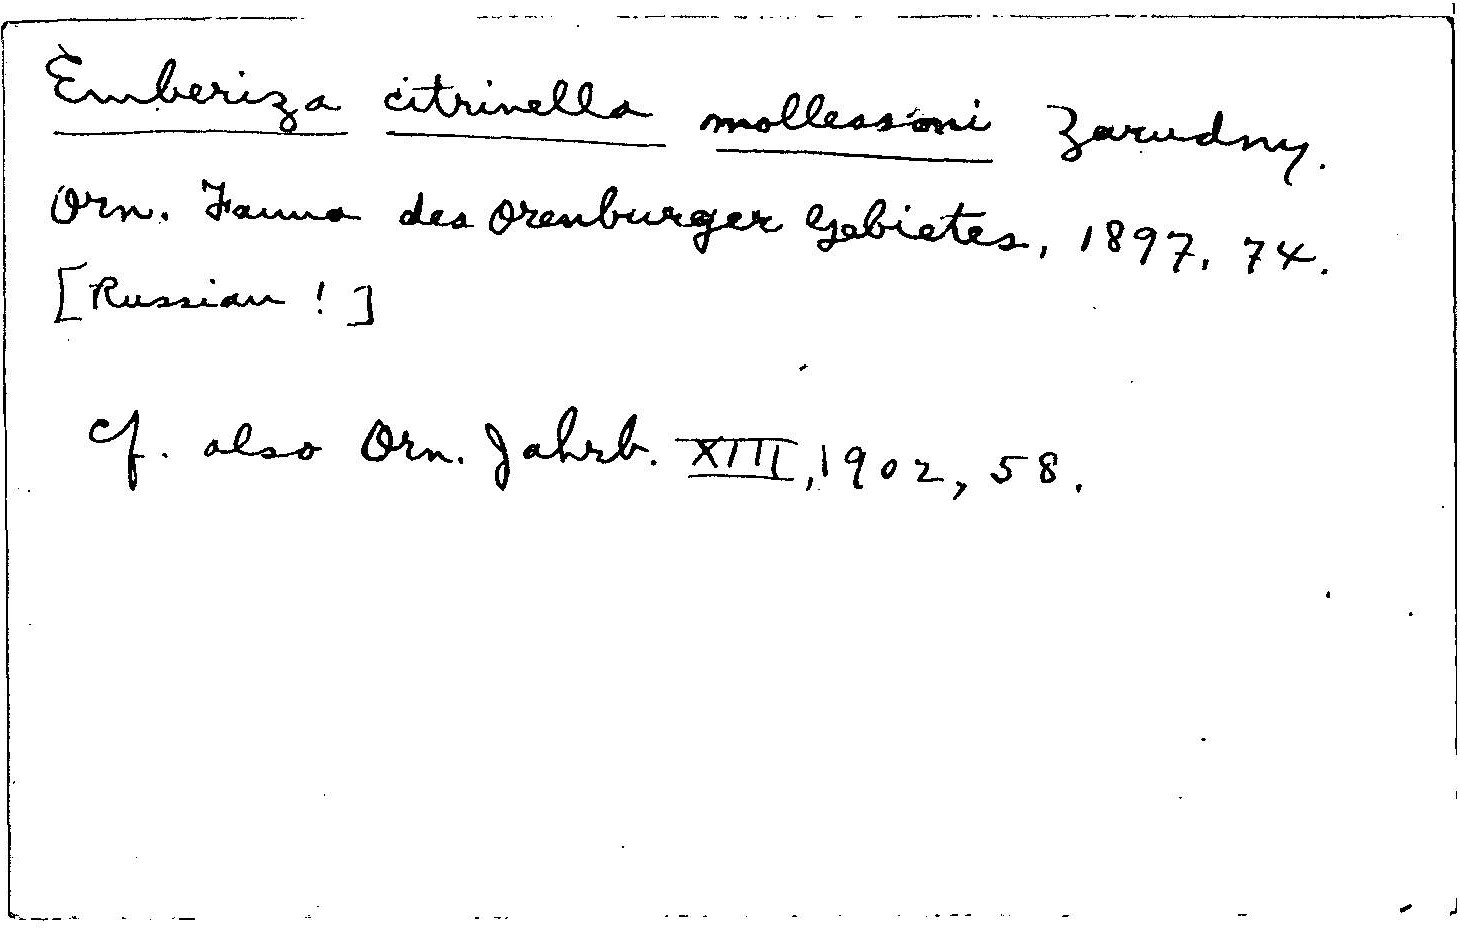 Emberiza citrinella mollessoni Zarudny.
Orn. Fauna des Orenburger Gebietes, 1897, 74.
[Russian ! ]
Cf. also Orn. Jahrb. XIII, 1902, 58.